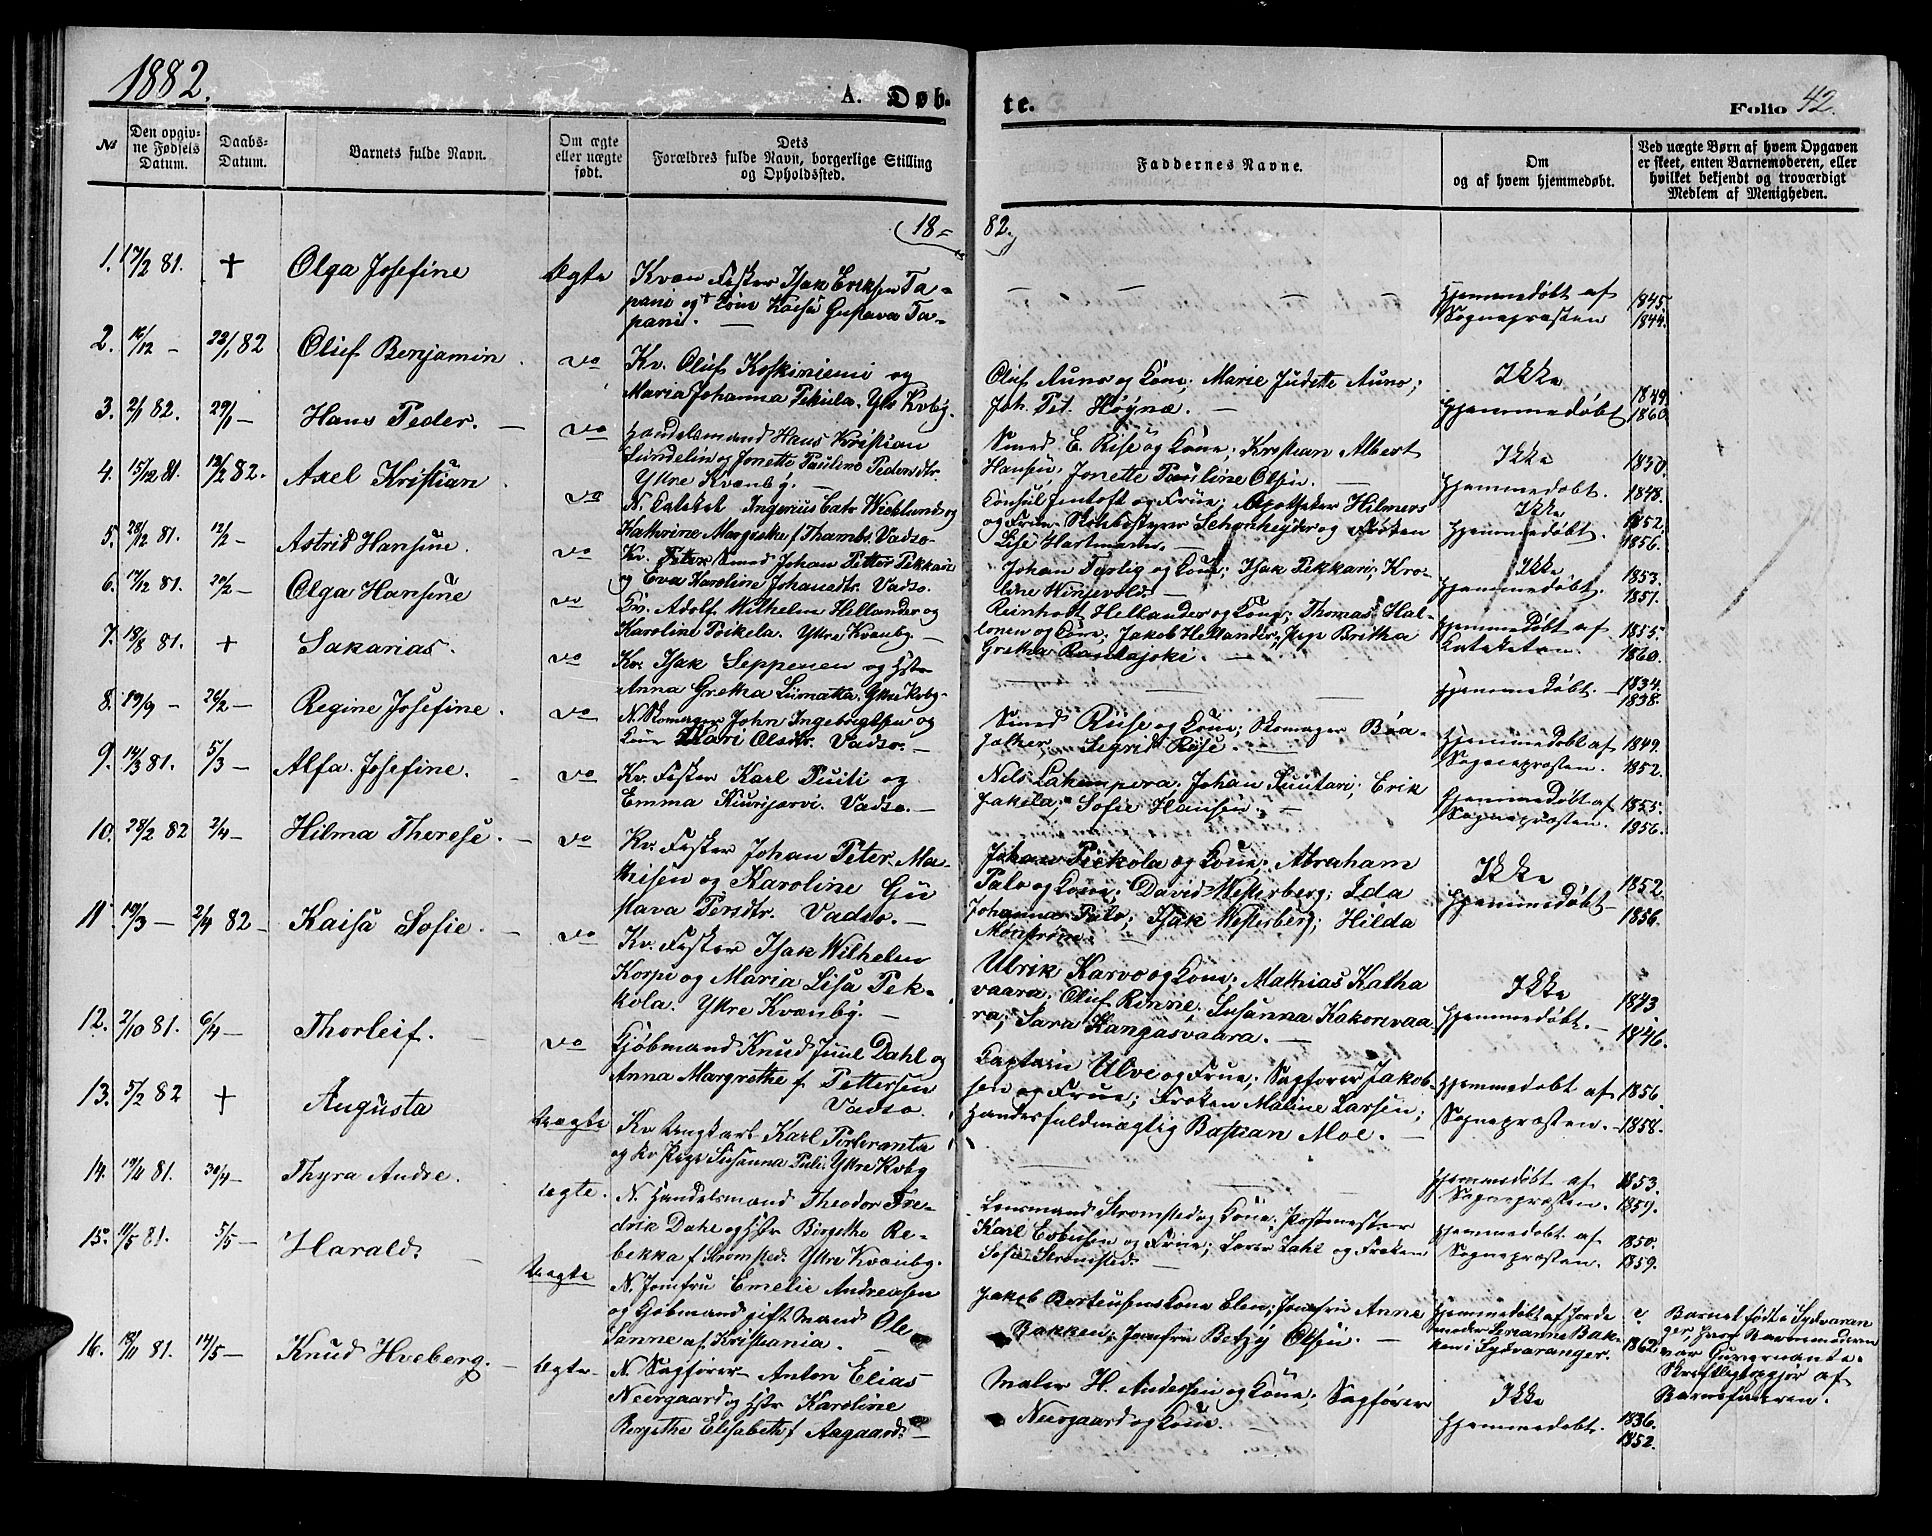 1882.
A. Døb-
te.
Folio 42.
№
Den opgiv-
ne Fødsels
Datum.
Daabs-
Datum.
Barnets fulde Navn.
Om ægte
eller uægte
født.
Dets
Forældres fulde Navn, borgerlige Stilling
og Opholdssted.
Faddernes Navne.
Om
og af hvem hjemmedøbt.
Ved uægte Børn af hvem Opgaven
er skeet, enten Barnemoderen, eller
hvilket bekjendt og troværdigt
Medlem af Menigheden.
18=
82.
1. 17/2 81. + Olga Josefine Ægte
Kvæn Fisker Isak Eriksen Ta-
pani og Kone Kaisa Gustava Ta-
pani. —
Hjemmedøbt af
Sognepræsten
1845.
1844.
2. 16/12 — 22/1 82 Oluf Benjamin. do
Kv. Oluf Koskiniemi og
Maria Johanna Pikula. Ytr. Kvbÿ.
Oluf Auno og Kone; Marie Judette Auno;
Joh. Pet. Höynæ. —
Ikke
Hjemmedøbt
1849.
1860.
3. 2/1 82. 29/1 — Hans Peder. — do
Handelsmand Hans Kristian
Lundelin og Jonette Pauline Pedersdtr.
Ytre Kvænbÿ. —
Smed E. Rise og Kone; Kristian Albert
Hansen; Jonette Pauline Olsen. —
Ikke
Hjemmedøbt.
1850.
1848.
4. 15/12 81. 12/2 82. Axel Kristian. do
N. Kateket Ingenius Cato Wicklund og
Kathrine Margrethe f. Thambs Vadsø.
Konsul Jentoft og Frue; Apotheker Hilmers
og Frue; Skolebestyrer Schønheyder og Frøken
Lise Hartmann. —
Ikke
Hjemmedøbt.
1852.
1856.
5. 28/12 81. 12/2 — Astrid Hansine. do
Kv. Smed Johan Petter Pekkari
og Eva Karoline Johansdtr. Vadsø.
Johan Torlig og Kone; Isak Pekkari; Kro-
line Wingevold. —
Ikke
Hjemmedøbt.
1853.
1851.
6. 17/12 81. 20/2 — Olga Hansine do
Kv. Adolf Wilhelm Hellander og
Karoline Poikela. Ytre Kvænbg. —
Reinholt Hellander og Kone; Thomas Hal-
lonen og Kone; Jakob Hellander; Pige Britha
Gretha Rautajoki. —
Hjemmedøbt af
Kateketen.
1855.
1860.
7. 18/8 81. + Sakarias. do
Kv. Isak Seppenen og Hstr
Anna Gretha Liimatta. Ytre Kvbg.
Hjemmedøbt. —
1834.
1838.
8. 19/9 — 26/2 — Regine Josefine. do
N. Skomager John Ingebrigtsen og
Kone Mari Olsdtr. Vadsø. —
Smed Riise og Kone; Skomager
Sigrid Riise. —
Hjemmedøbt af
Sognepræsten.
1849.
1852.
9. 14/3 81. 5/3 — Alfa Josefine. — do
Kv. Fisker Karl Puiti og
Emma Kiurijarvi. Vadsø. —
Nils Lahenpera; Johan Luutari; Erik
Jakola; Sofie Hansen. —
Hjemmedøbt af
Sognepræsten.
1855.
1856.
10. 28/2 82 2/4 — Hilma Therese. — do
Kv. Fisker Johan Peter Ma-
thisen og Karoline Gu
stava Persdtr. Vadsø. —
Johan Piekola og Kone; Abraham
Palo og Kone; David Westerberg; Ida
Johanna Palo; Isak Westerberg; Hilda
Monström. —
Ikke
Hjemmedøbt
1852.
1856.
11. 19/3 — 2/4 82 — Kaisa Sofie. — do
Kv. Fisker Isak Wilhelm
Korpi og Maria Lisa Pek-
kola. Ytre Kvænbg. —
Ulrik Karvo og Kone; Mathias Katha
vaara; Oluf Rinnie; Susanna Kakorivaa
ra; Sara Kangasvaara. —
Ikke
Hjemmedøbt. —
1843
1846.
12. 2/10 81. 6/4 — Thorleif. — do
Kjøbmand Knud Juul Dahl og
Anna Margrethe f. Pettersen
Vadsø.
Captain Ulve og Frue; Sagfører Jakob-
sen og Frue; Frøken Maline Larsen;
Handesfuldmægtig Bastian Moe. —
Hjemmedøbt af
Sognepræsten.
1856
1858.
13. 5/2 82 + Augusta Uægte
Kv. Ungkarl Karl Portiranta
og Kv. Pige Susanna Puli. Ytre Kvbg
Hjemmedøbt af
Sognepræsten.
1853.
1859.
14. 19/11 81. 30/4 — Thyra Andre. ægte.
N. Handelsmand Theodor Fre-
drik Dahl og Hstr Birgithe Re-
bekka f. Strømsted. Ytre Kvænbg.
Lensmand Strømsted og Kone; Postmester
Karl Esbensen og Frue; Lærer Dahl og Frøken
Sofie Strømsted. —
Hjemmedøbt af
Sognepræsten.
1850.
1859.
15. 11/5 81. 5/5 — Harald. — Uægte
N. Jomfru Emelie Andreassen
og Kjøbmand gift Mand Ole
Sanne af Kristiania. —
Jakob Bertensens Kone Elen; Jomfru Anne
Bakken; Jomfru Betzÿ Olsen. —
Hjemmedøbt af Jorde
moder Serianne Bak-
ken i Sydvaranger.
?
1862.
Barnet født i Sydvaran
ger, hvor Barnmoderen
var Guvernante.
Skriftligt opgjør af
Barnefaderen.
16. 18/11 81. 14/5 — Knud Hveberg. — Ægte.
N. Sagfører Anton Elias
Neergaard og Hstr Karoline
Birgithe Elisabeth f. Aagaard. —
Maler H. Andersen og Kone; Sagfører
Neergaard og Kone.
Ikke
Hjemmedøbt.
1836.
1852.